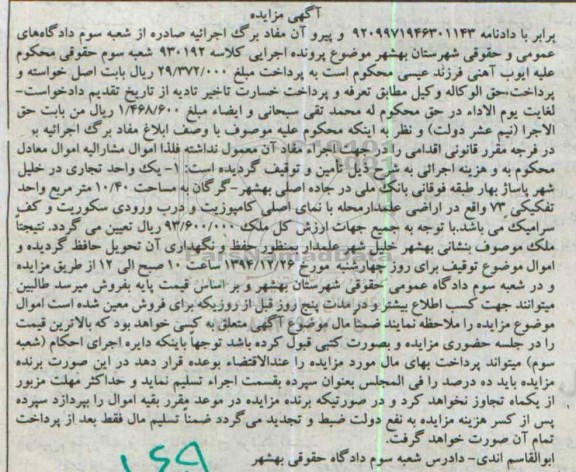 آگهی مزایده
برابر با دادنامه ۹۲۰۹۹۷۱۹۴۶۳۰۱۱۴۳ و پیرو آن مفاد برگ اجرائیه صادره از شعبه سوم دادگاههای
عمومی و حقوقی شهرستان بهشهر موضوع پرونده اجرایی کلاسه ۹۳۰۱۹۲ شعبه سوم حقوقی محکوم
علیه ایوب آهنی فرزند عیسی محکوم است به پرداخت مبلغ ۲۹/۳۷۲/۰۰۰ ریال بابت اصل خواسته و
پرداخت حق الوکاله وکیل مطابق تعرفه و پرداخت خسارت تاخیر تادیه از تاریخ تقدیم دادخواست-
لغایت یوم الاداء در حق محکوم له محمد تقی سبحانی و ایضاء مبلغ ۱/۴۶۸/۶۰۰ ریال من بابت حق
الاجرا (نیم عشر دولت) و نظر به اینکه محکوم علیه موصوف با وصف ابلاغ مفاد برگ اجرائیه و
در فرجه مقرر قانونی اقدامی را در جهت اجراء مفاد آن معمول نداشته فلذا اموال مشارالیه اموال معادل
محکوم به و هزینه اجرائی به شرح ذیل تأمین و توقیف گردیده است: ۱- یک واحد تجاری در خلیل
شهر پاساژ بهار طبقه فوقانی بانک ملی در جاده اصلی بهشهر-گرگان به مساحت ۱۰/۴۰ متر مربع واحد
تفکیکی ۷۳ واقع در اراضی علمدارمحله با نمای اصلی کامپوزیت و درب ورودی سکوریت و کف
سرامیک می باشد.با توجه به جمیع جهات ارزش کل ملک ۹۳/۶۰۰/۰۰۰ ریال تعیین می گردد. نتیجتاً
ملک موصوف بنشانی بهشهر خلیل شهر علمدار بمنظور حفظ و نگهداری آن تحویل حافظ گردیده و
اموال موضوع توقیف برای روز چهارشنبه مورخ ۱۳۹۴/۱۲/۲۶ ساعت ۱۰ صبح الی ۱۲ از طریق مزایده
و در شعبه سوم دادگاه عمومی حقوقی شهرستان بهشهر و بر اساس قیمت پایه بفروش میرسد طالبین
میتوانند جهت کسب اطلاع بیشتر و در مدت پنج روز قبل از روزیکه برای فروش معین شده است اموال
موضوع مزایده را ملاحظه نمایند ضمناً مال موضوع آگهی متعلق به کسی خواهد بود که بالاترین قیمت
را در جلسه حضوری مزایده و بصورت کتبی قبول کرده باشد توجهاً باینکه دایره اجرای احکام (شعبه
سوم) میتواند پرداخت بهای مال مورد مزایده را عندالاقتضاء بوعده قرار دهد در این صورت برنده
مزایده باید ده درصد را فی المجلس بعنوان سپرده بقسمت اجراء تسلیم نماید و حداکثر مهلت مزبور
از یکماه تجاوز نخواهد کرد و در صورتیکه برنده مزایده در موعد مقرر بقیه اموال را بپردازد سپرده
پس از کسر هزینه مزایده به نفع دولت ضبط و تجدید می گردد ضمناً تسلیم مال فقط بعد از پرداخت
تمام آن صورت خواهد گرفت.
ابوالقاسم اندی- دادرس شعبه سوم دادگاه حقوقی بهشهر